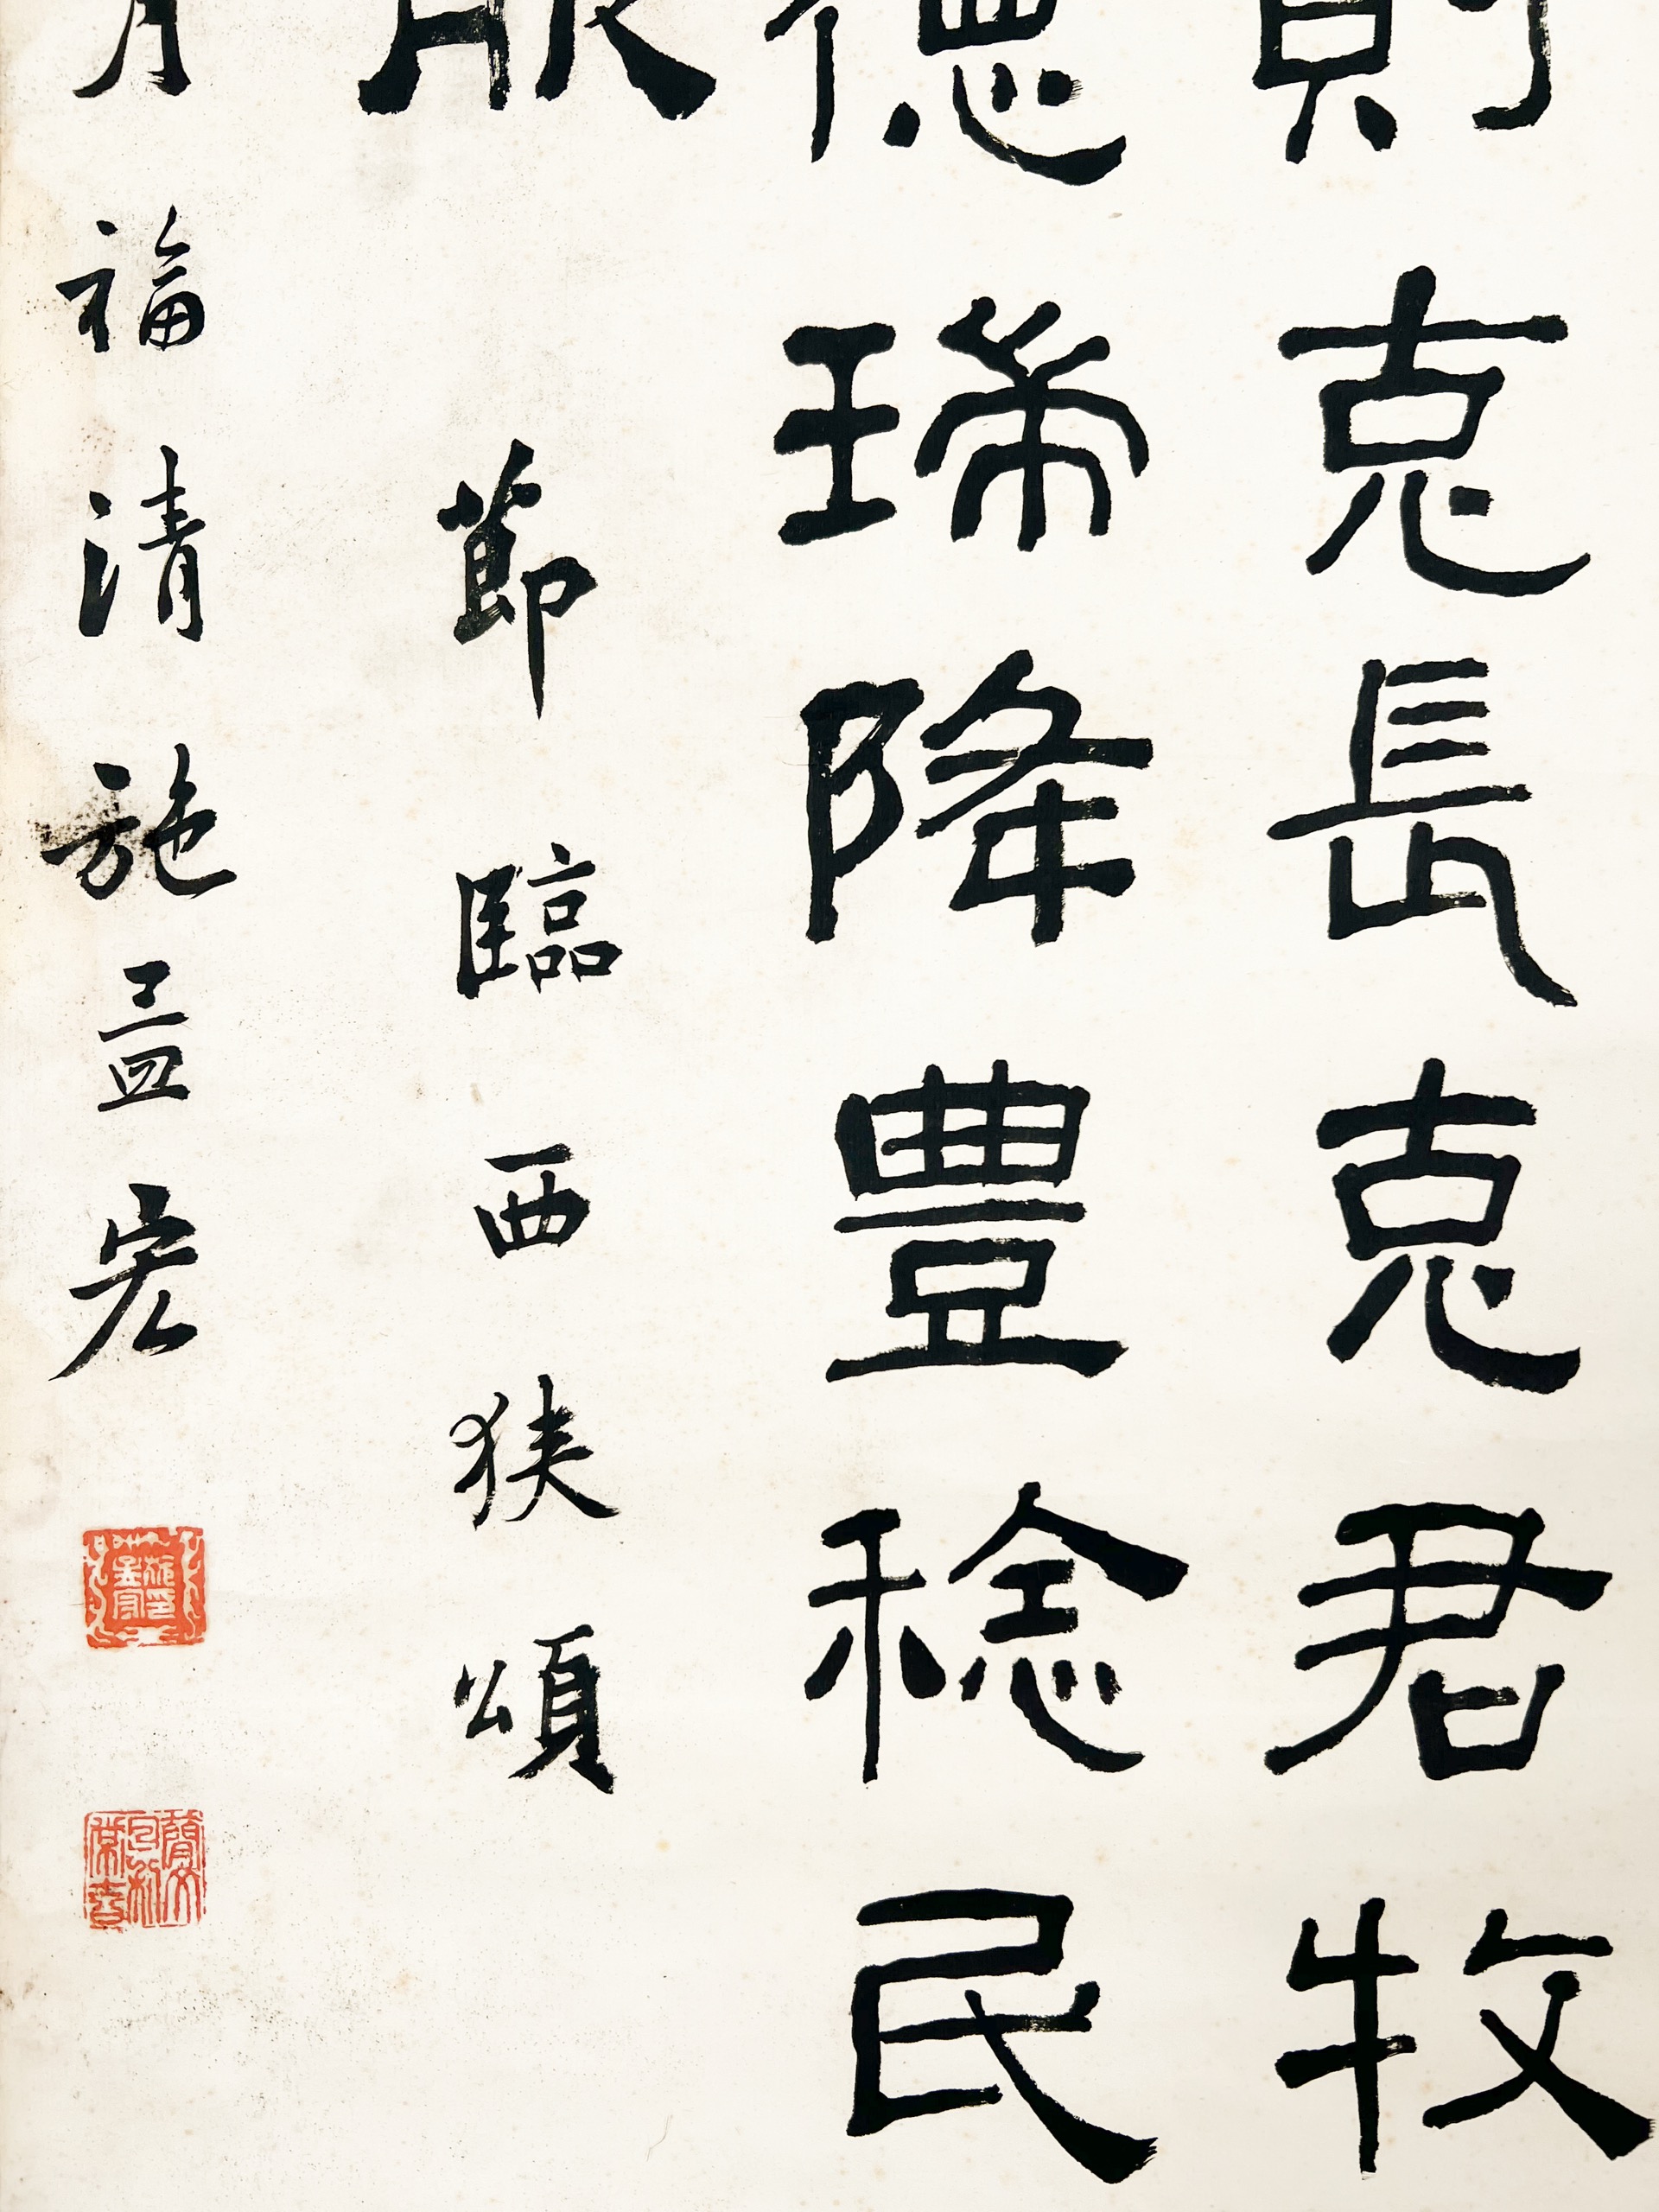 則克長克君牧
德瑞降豐稔民
服節臨西狹頌
月福清施孟宏